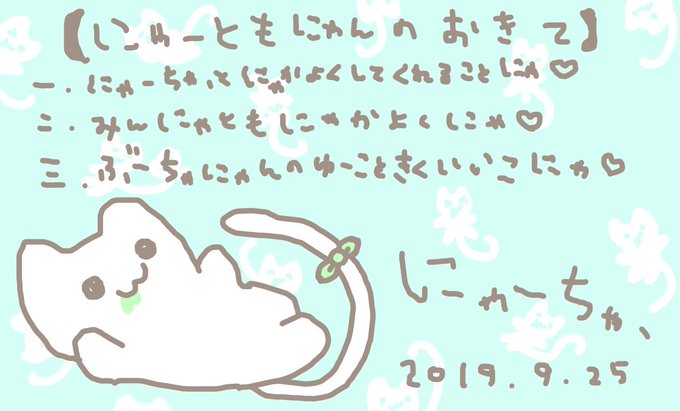 【にゅーともにゃんのおきて】
一.にゃーちゃ、とにゃかよくしてくれることにゃ♡
二.みんにゃともにゃかよくにゃ♡
三.ぶーちゃにゃんのゆーこときくいいこにゃ♡
にゃーちゃ、
2019.9.25